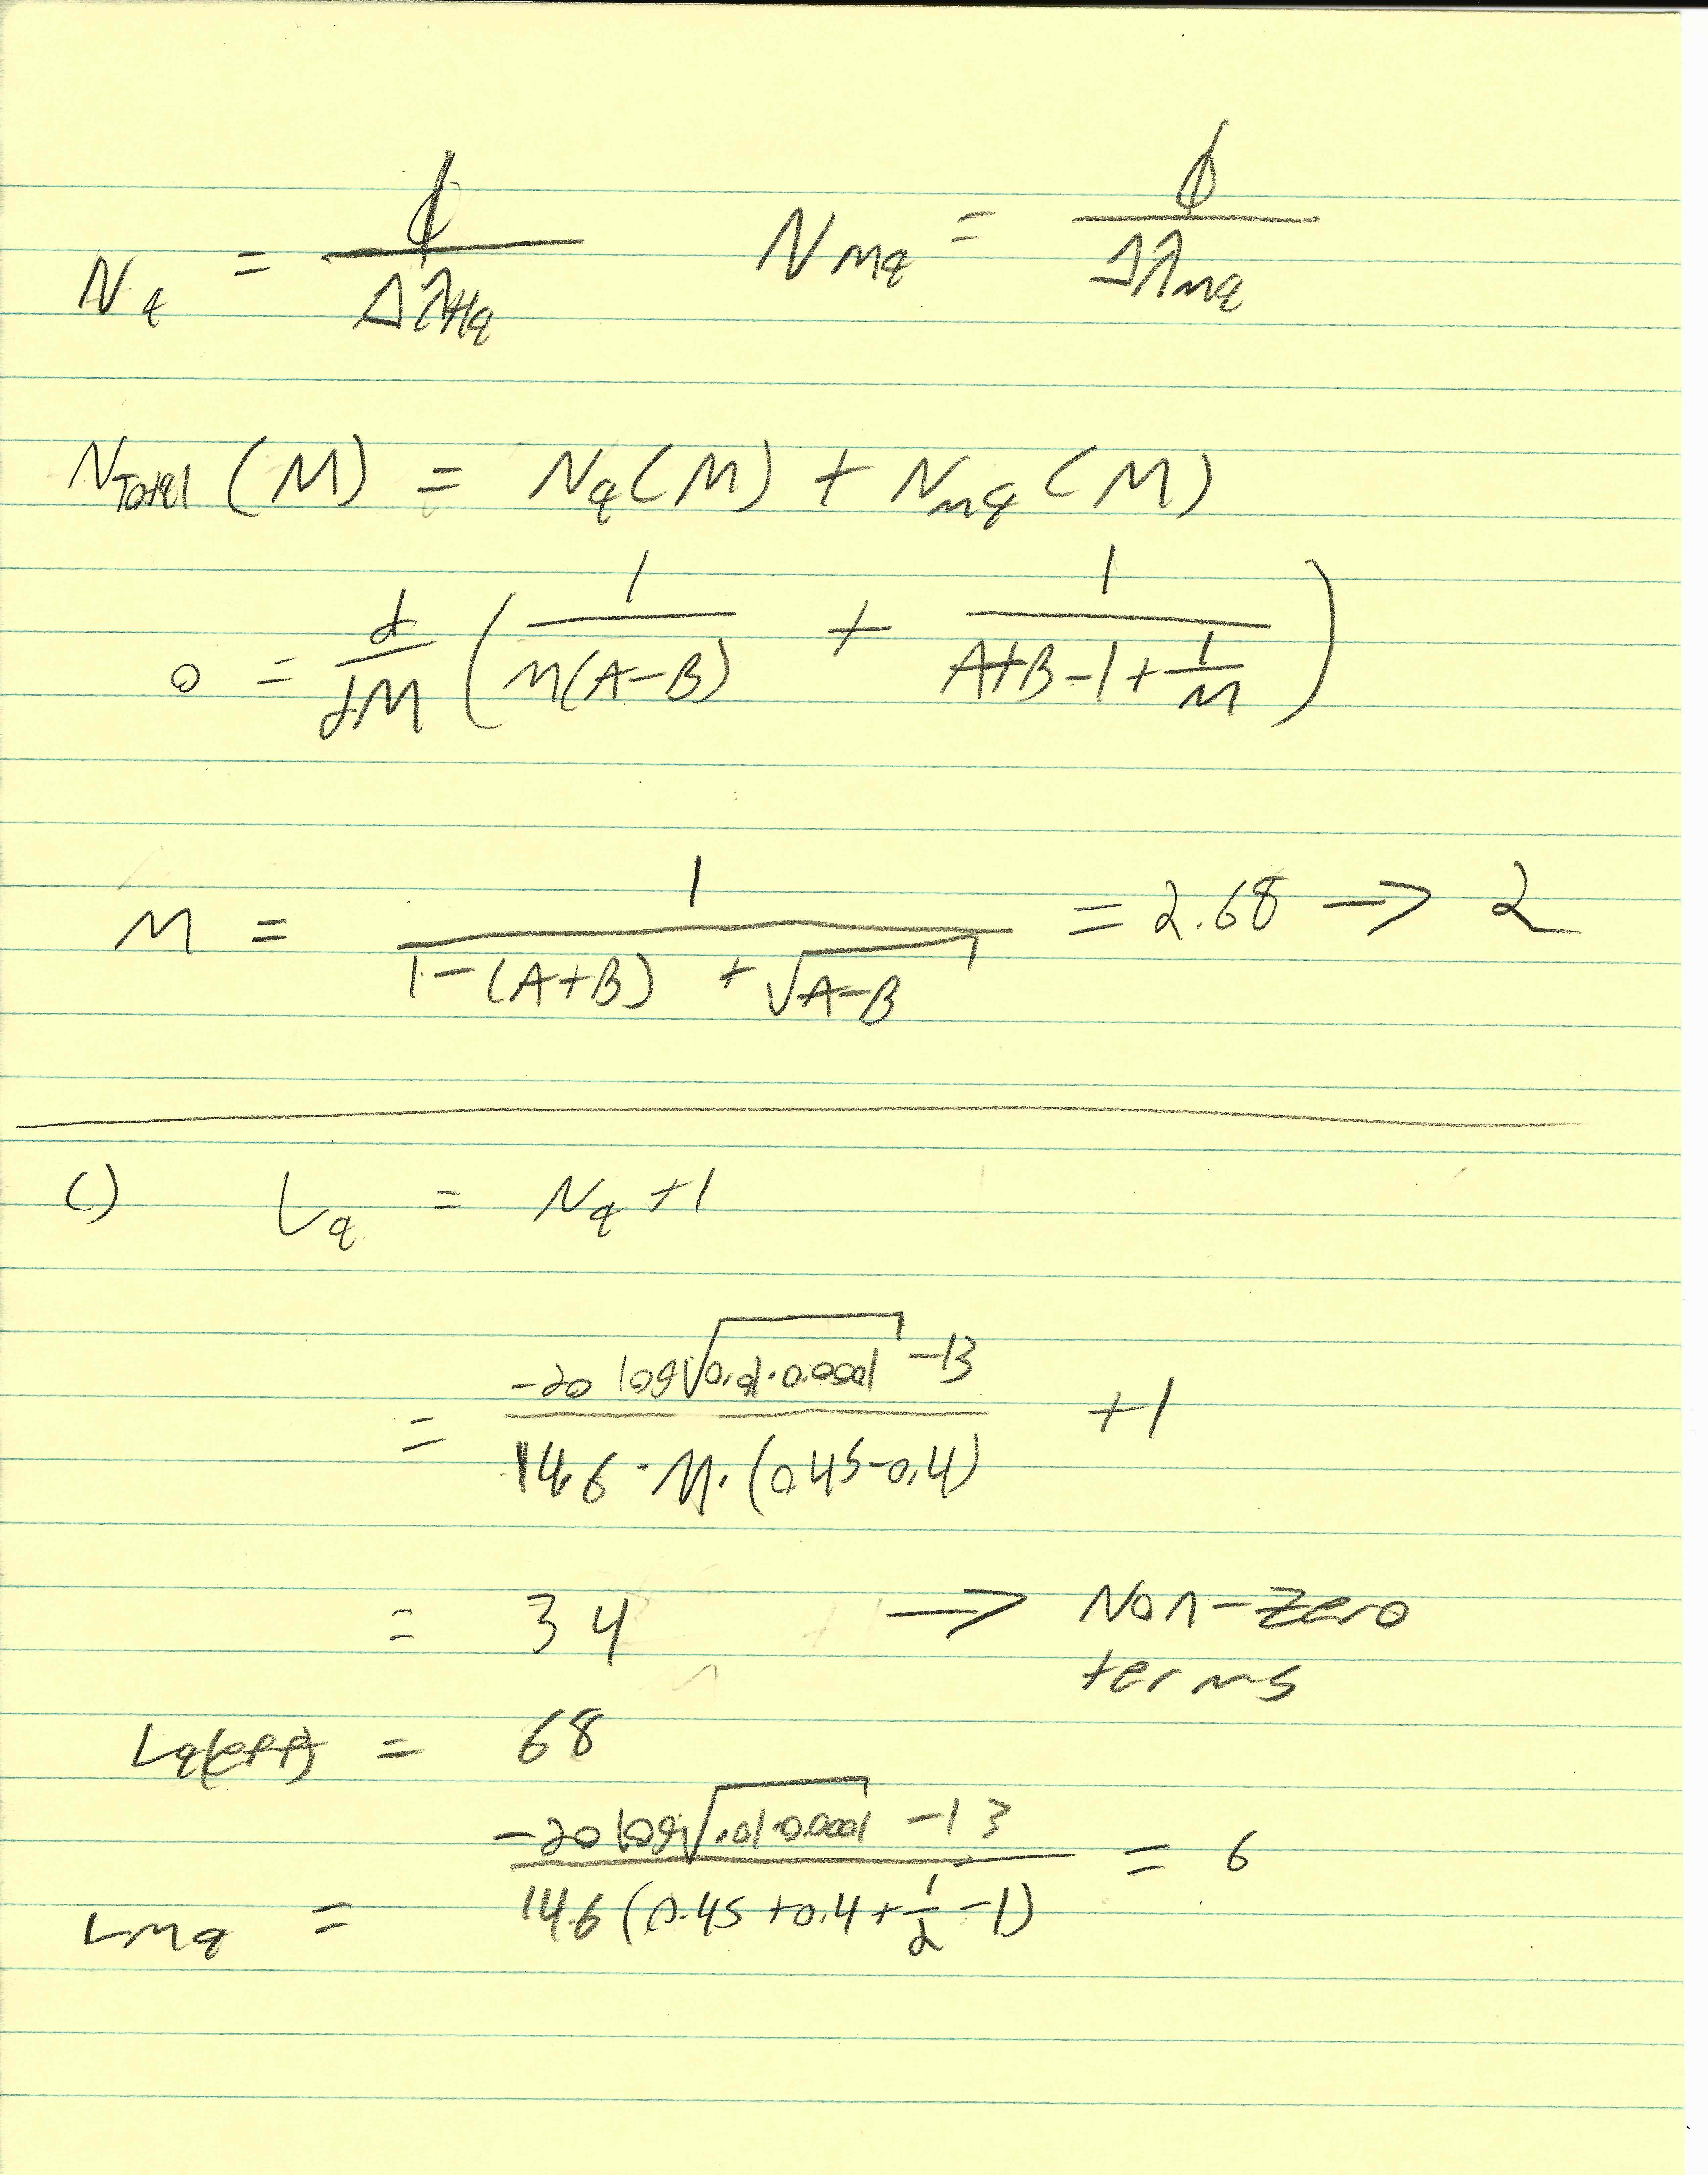 N_q = ϕ / Δλ_Hq    N_mq = ϕ / Δλ_mq
N_Total (M) = N_q (M) + N_mq (M)
0 = d/dM ( 1 / M(A-B) + 1 / A+B-1+1/M )
M = 1 / 1-(A+B) + √A-B = 2.68 → 2
c) L_q = N_q +1
= -20 log√0.01·0.0001 -13 / 14.6 · M · (0.45-0.4) +1
= 34 → Non-Zero
terms
L_q(eff) = 68
L_mq = -20 log√.01·0.0001 -13 / 14.6 (0.45 +0.4 + 1/2 -1) = 6